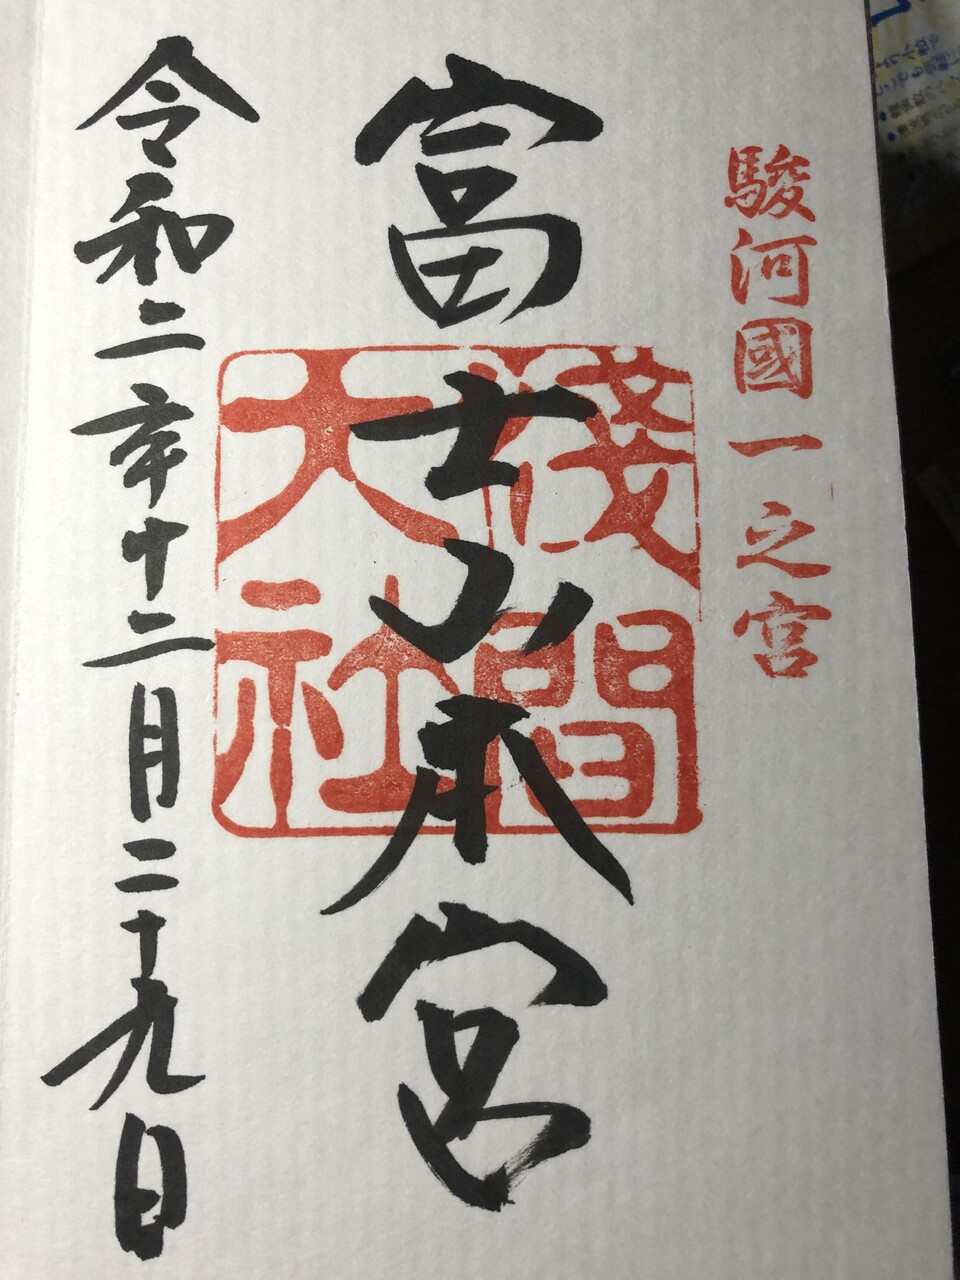 駿河國一之宮
富士山本宮
淺間
大社
令和二年十二月二十九日